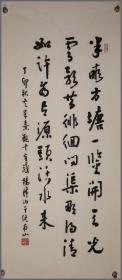 半畝方塘一鑑開天光
雲影共徘徊問渠那得清
如許為有源頭活水來
丁卯秋